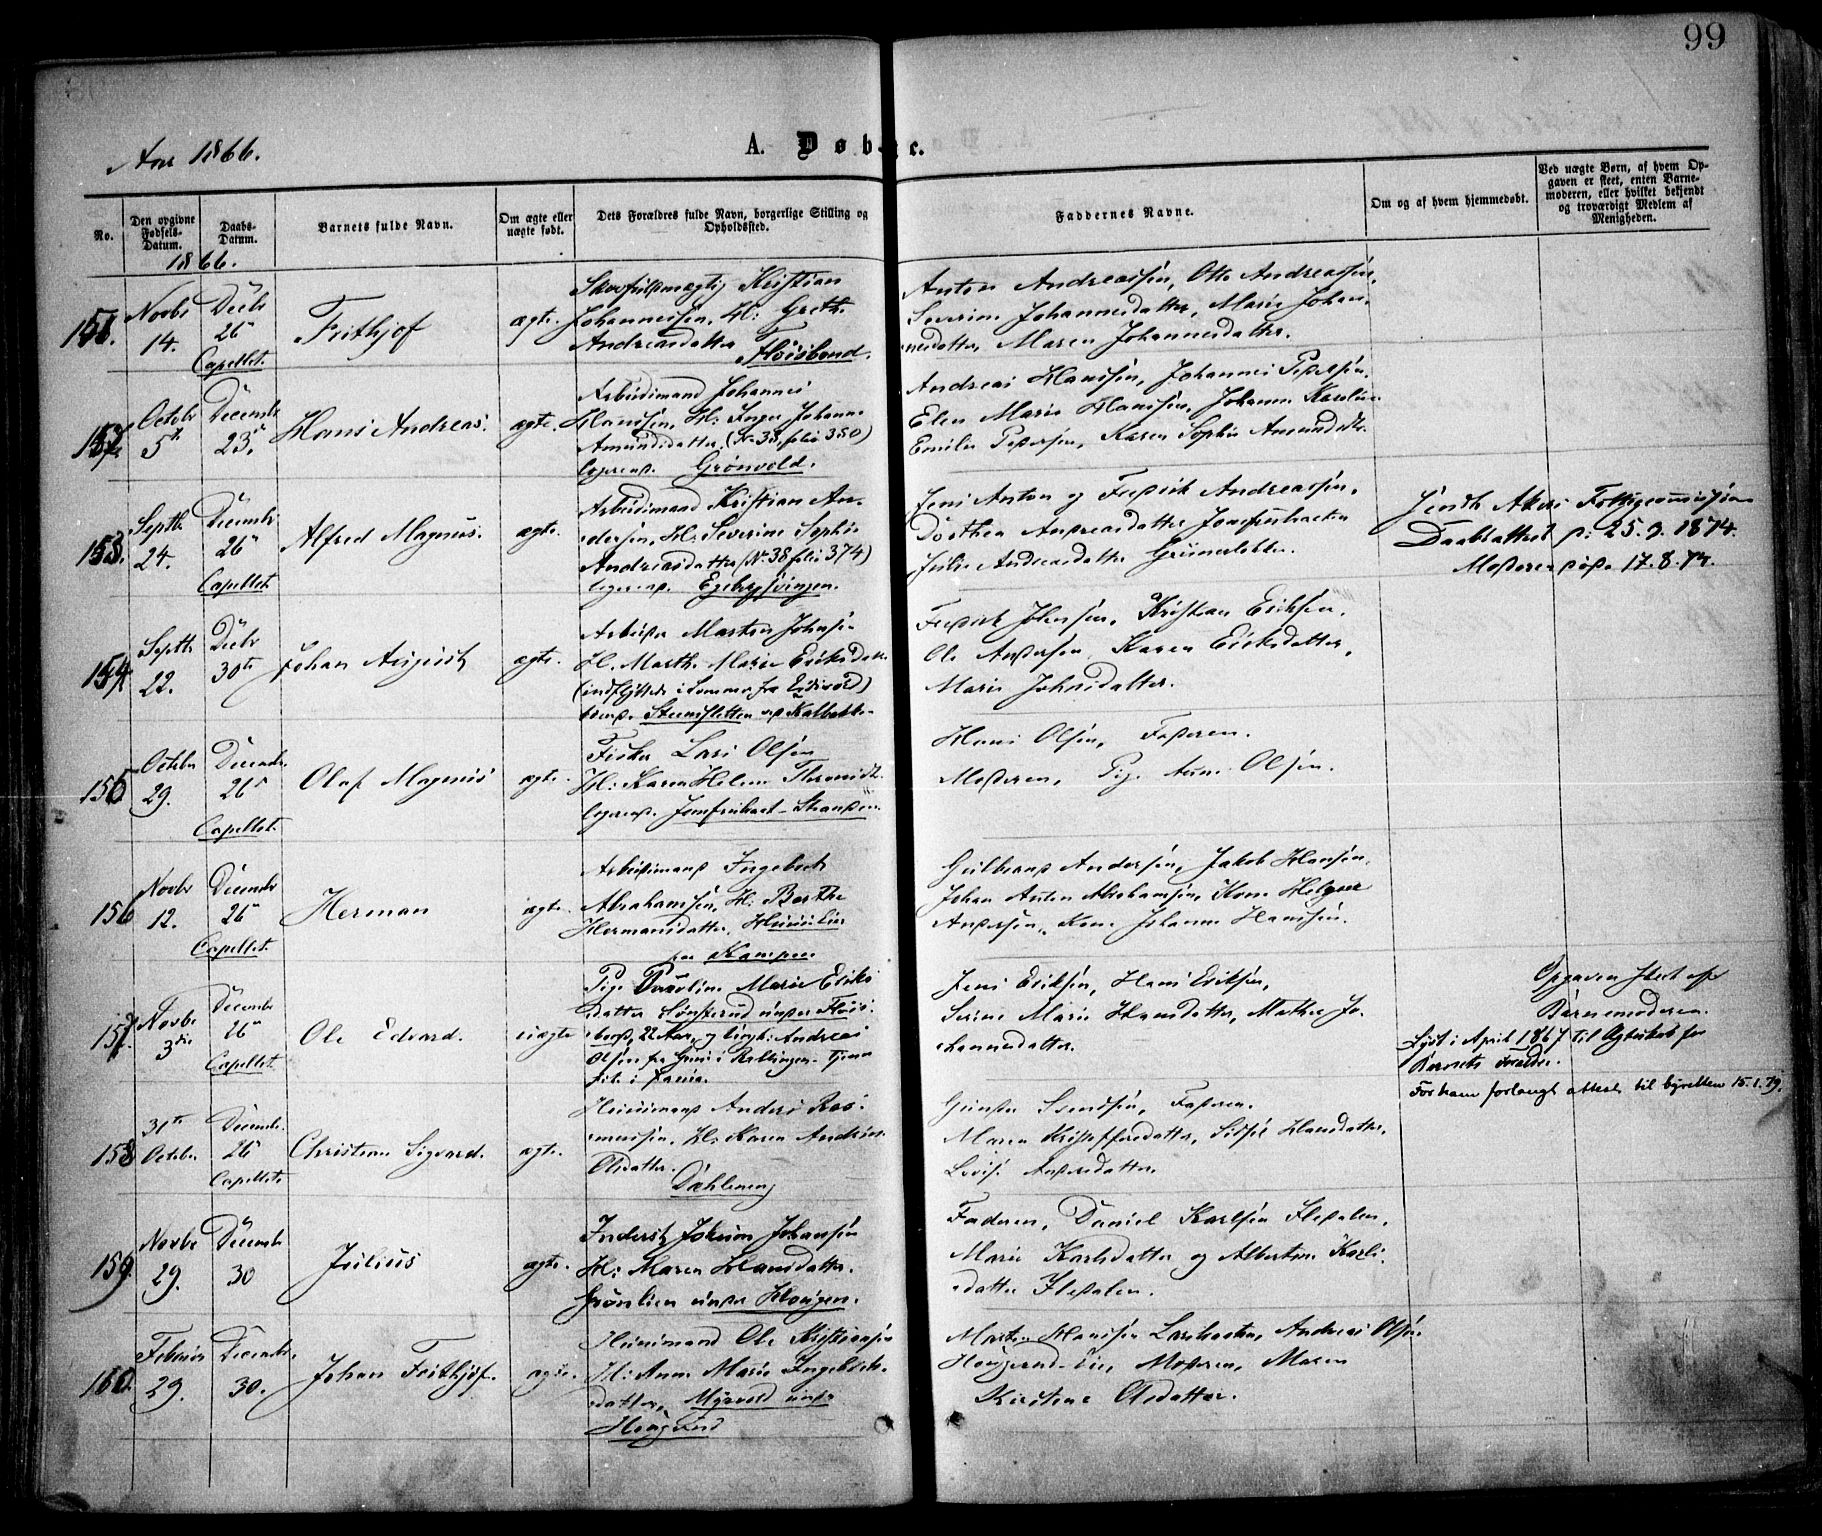 99
Aar 1866.
A. Døbte.
No.
Den opgivne Fødsels-Datum.
Daabs-Datum.
Barnets fulde Navn.
Om ægte eller uægte født.
Dets Forældres fulde Navn, borgerlige Stilling og Opholdssted.
Faddernes Navne.
Om og af hvem hjemmedøbt.
Ved uægte Børn, af hvem Opgaven er skeet, enten Barnemoderen, eller hvilket bekjendt og troværdigt Medlem af Menigheden.
1866.
151.
Novbr 14.
Decbr 26
Capellet.
Frithjof
ægte.
Kristian
Johannessen, H: Grethe
Andreasdatter Fløisbond.
Anton Andreassen, Otto Andreassen,
Severine Johannesdatter, Marie Johan-
nesdatter, Maren Johannesdatter.
152.
Octobr 5te
Decembr 23.
Hans Andreas.
ægte.
Arbeidsmand Johannes
Hanssen, H: Inger Johanne
Amundsdatter (No 38, folio 350)
Grønvold.
Andreas Hanssen, Johannes Pedersen,
Elen Marie Hanssen, Johanne Karoline
Emilie Pedersen, Karen Sophie Amundsdtr.
153.
Septbr 24.
Decembr 26
Capellet.
Alfred Magnus.
ægte.
Arbeidsmand Kristian An-
dersen, H: Severine Sophie
Andreasdatter (No 38 folio 374)
Egebergsvingen.
Jens Anton og Fredrik Andreassen,
Dorthea Andreasdatter
Julie Andreasdatter Grünerløkken.
Daabsattest 25.9.1874.
Moderen død 17.8.74.
154
Septbr 22.
Decbr 30te
Johan August
ægte.
Arbeider Morten Johnsen
H. Marthe Marie Eriksdatter
(indflyttede i Sommer fra Eidsvold)
Fredrik Johnsen, Kristian Eriksen,
Ole Andersen, Karen Eriksdatter,
Marie Johnsdatter.
155
October 29.
Decembr. 26
Capellet.
Olaf Magnus
ægte.
Fisker Lars Olsen
H: Karen Helene
Hans Olsen, Faderen.
Moderen, Pige Anne Olsen.
156
Novbr 12.
Decembr 26
Capellet.
Herman
ægte.
Arbeidsmand Ingebret
Abrahamsen, H: Berthe
Hermansdatter,
Kampen
Gulbrand Andersen, Jakob Hansen,
Johan Anton Abrahamsen, Kone Helene
Andersen, Kone Johanne Hanssen.
157.
Novbr 3die
Decembr 26
Capellet.
Ole Edvard.
uægte
Pige Pauline Marie Eriks-
datter
22 Aar, og Ungk: Andreas
Olsen fra
Jens Eriksen, Hans Eriksen,
Serine Marie Hansdatter, Mathea Jo-
hannesdatter.
Opgaven skeet af
Barnemoderen.
Lyst i April 1867 til Ægteskab for
Barnets Forældre.
For ham forlangt attest til byretten 15.1.79.
158
31te October
Decembr. 26
Capellet.
Christian Sigvard.
ægte.
Huusmand Anders Ras-
mussen, H: Karen Andrine
Olsdatter.
Dæhlenen
Gunder Svendsen, Faderen.
Maren Kristoffersdatter, Sidsel Hansdatter,
Lovise Andersdatter.
159
Novbr 29.
Decembr 30
Julius
ægte.
Inderst Johan Johansen
H: Maren Hansdatter.
Grønlien under Haugen.
Faderen, Daniel Karlsen Flesalen,
Marie Karlsdatter og Albertine Karls-
datter Flesalen.
160.
Februar 29.
Decembr. 30.
Johan Frithjof.
ægte.
Huusmand Ole Kristiansen
H: Anne Marie Ingebrets-
datter, Myrvold under
Haugerud
Morten Hanssen, Andreas Olsen
Moderen, Maren
Kirstine Olsdatter.